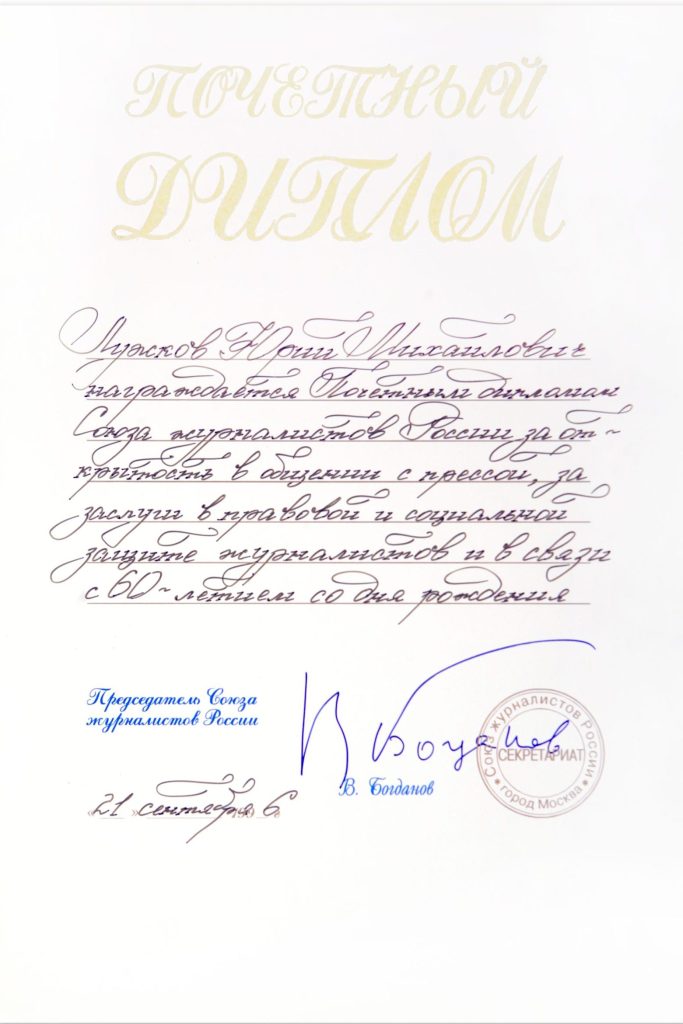 ПОЧЕТНЫЙ
ДИПЛОМ
Лужков Юрий Михайлович
награждается Почетным дипломом
Союза журналистов России за от-
крытость в общении с прессой, за
заслуги в правовой и социальной
защите журналистов и в связи
с 60-летием со дня рождения
Председатель Союза
журналистов России
В. Богданов
В. Богданов
Союз журналистов России
СЕКРЕТАРИАТ
* город Москва *
«21» сентября 1996